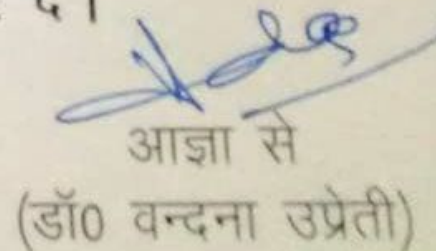 आज्ञा से
(डॉ0 वन्दना उप्रेती)